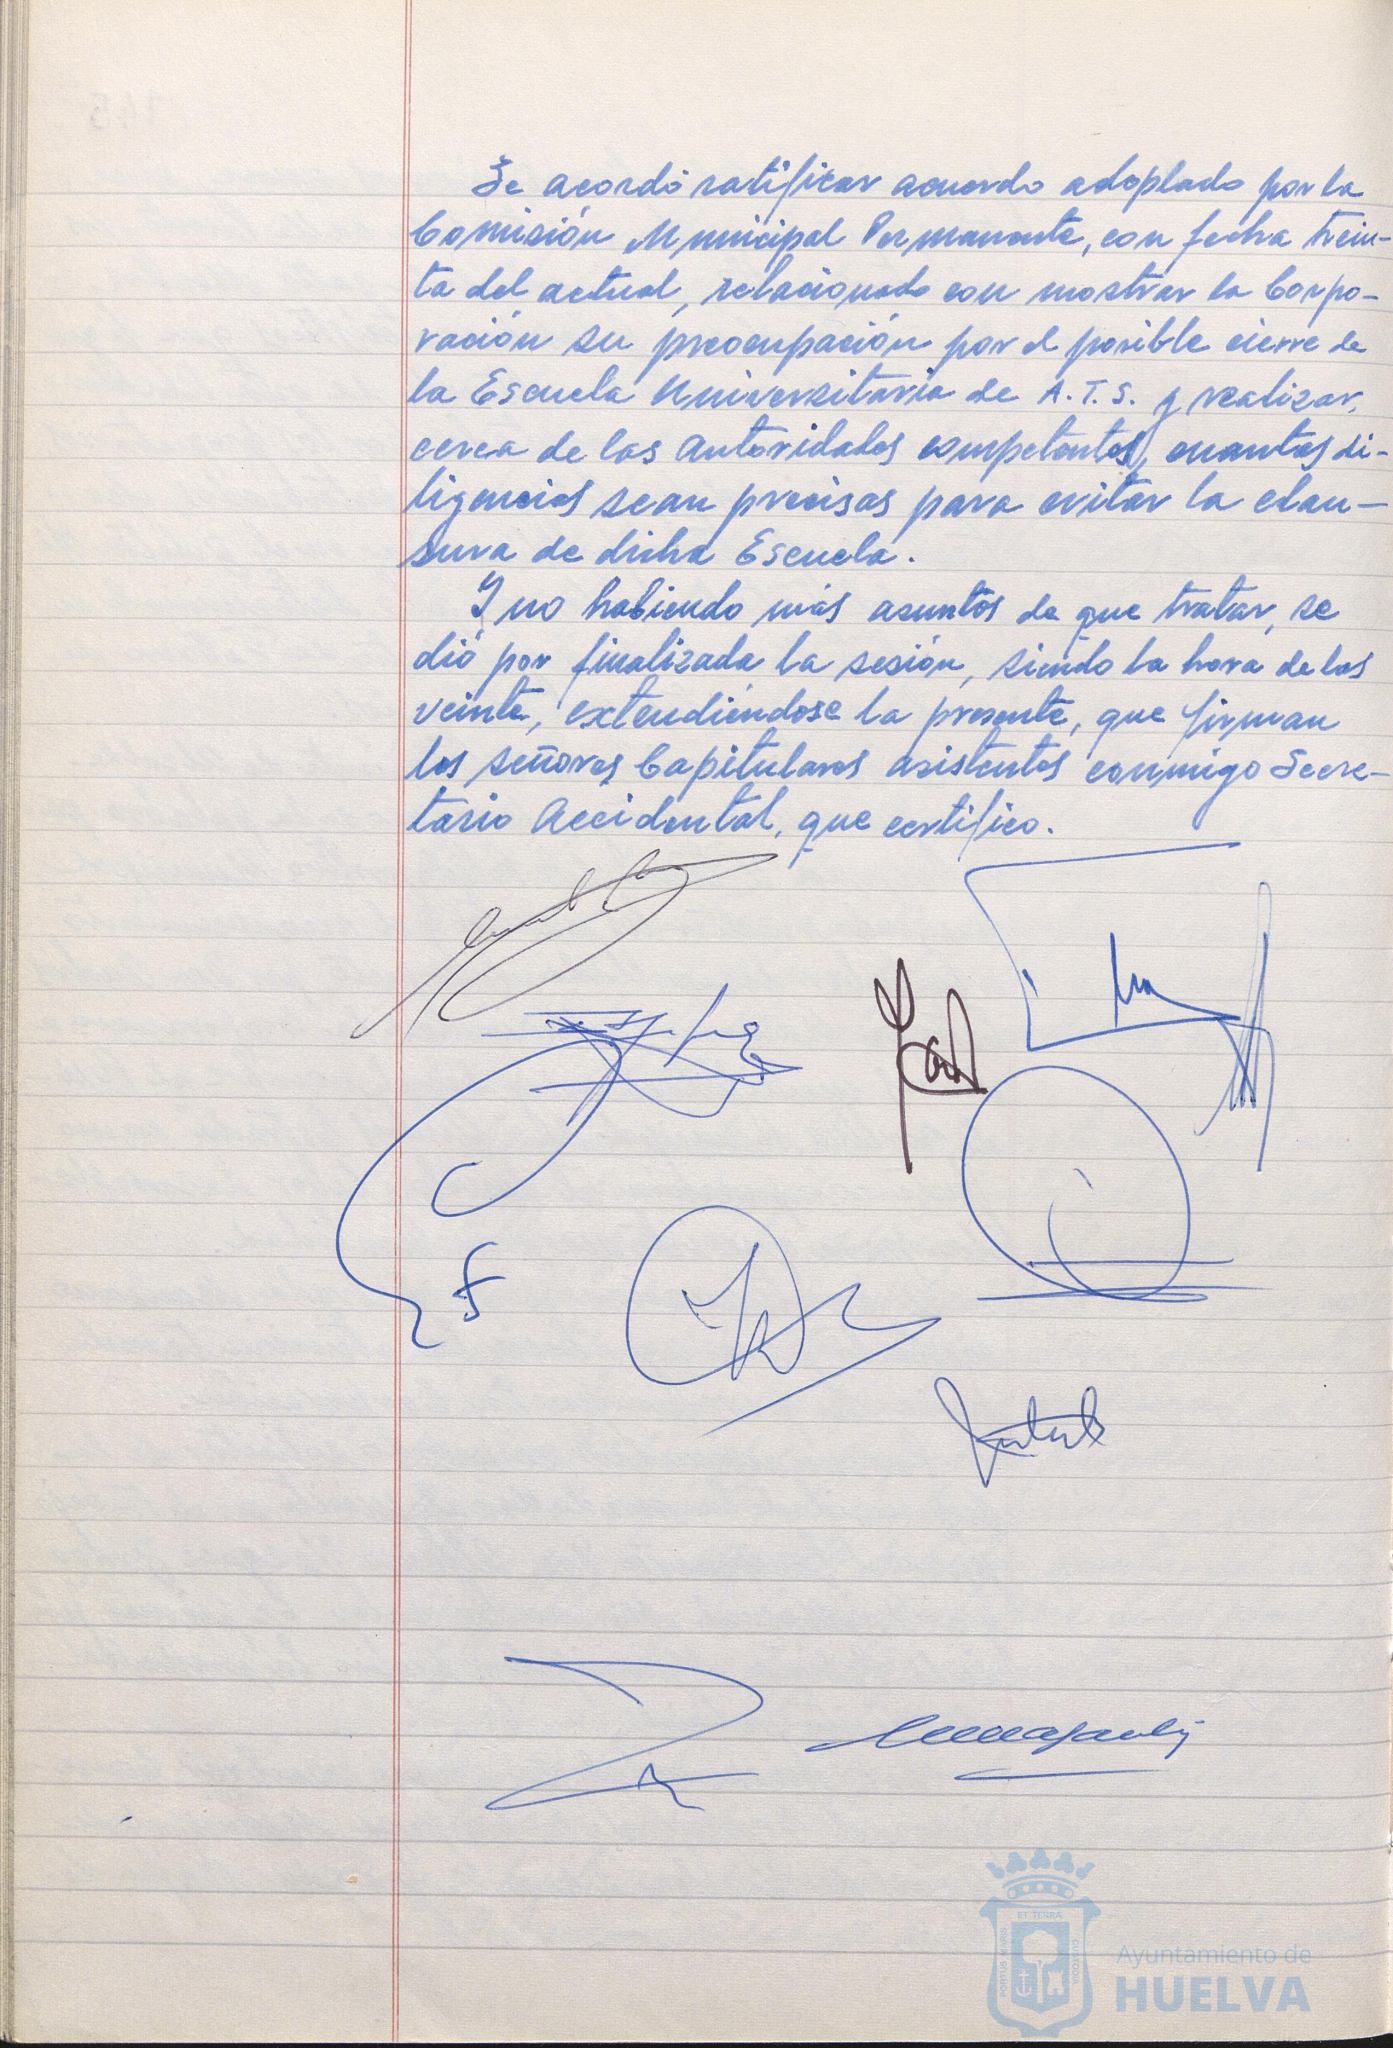 Se acordó ratificar acuerdo adoptado por la
Comisión Municipal Permanente, con fecha trein-
ta del actual, relacionado con mostrar la Corpo-
ración su preocupación por el posible cierre de
la Escuela Universitaria de A.T.S. y realizar,
cerca de las Autoridades competentes, cuantas di-
ligencias sean precisas para evitar la clau-
sura de dicha Escuela.
Y no habiendo más asuntos de que tratar, se
dió por finalizada la sesión, siendo la hora de las
veinte, extendiéndose la presente, que firman
los señores Capitulares asistentes conmigo Secre-
tario Accidental, que certifico.
PORTUS MARIS
ET TERRÆ
CUSTODIA
Ayuntamiento de
HUELVA